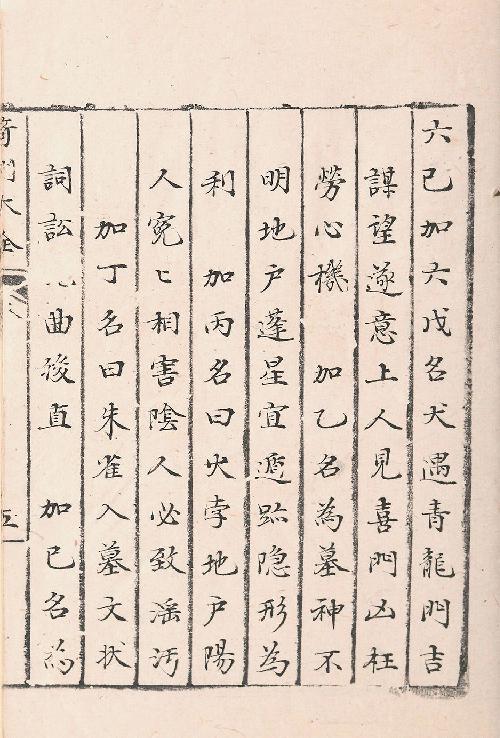 六己加六戊名犬遇青龍門吉
謀望遂意上人見喜門凶枉
勞心機　加乙名為墓神不
明地户蓬星宜遁跡隐形為
利　加丙名曰火孛地户陽
人寃〻相害陰人必致淫汚
加丁名曰朱雀入墓文状
詞訟 曲後直　加己名为
奇門大全
五